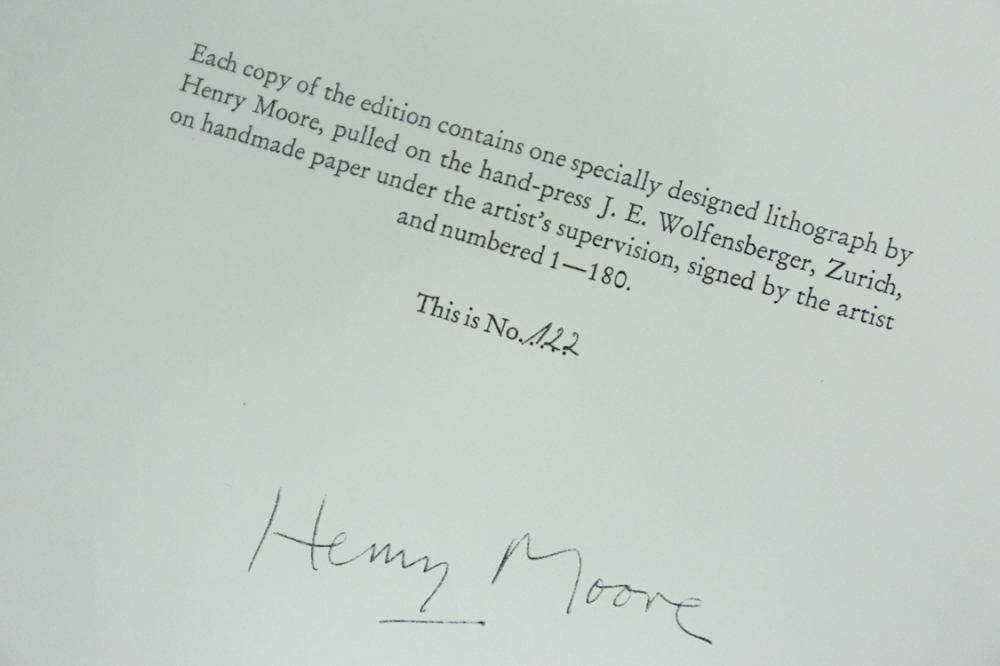 Each copy of the edition contains one specially designed lithograph by
Henry Moore, pulled on the hand-press J. E. Wolfensberger, Zurich,
on handmade paper under the artist's supervision, signed by the artist
and numbered 1—180.
This is No. 122
Henry Moore